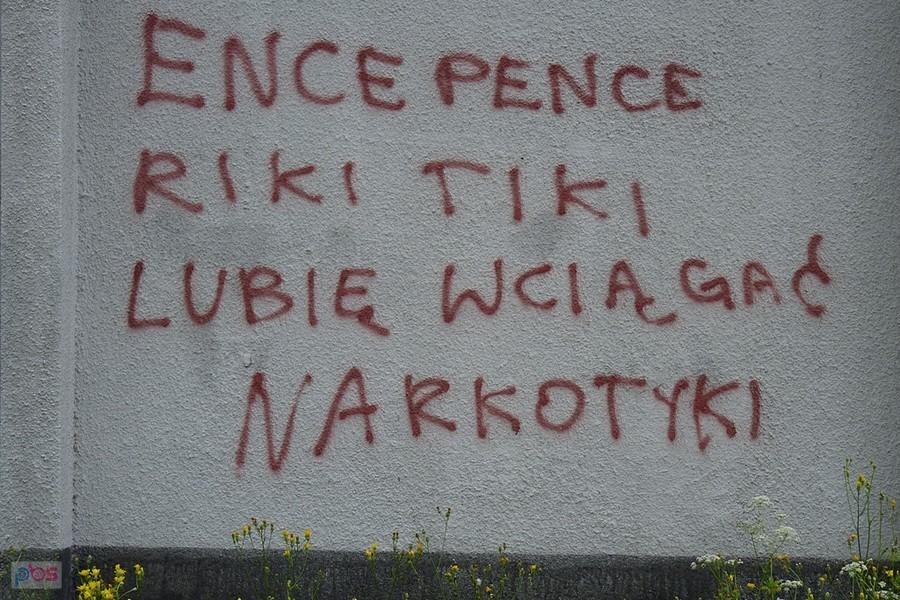 ENCE PENCE
RIKI TIKI
LUBIĘ WCIĄGAĆ
NARKOTYKI
pbs